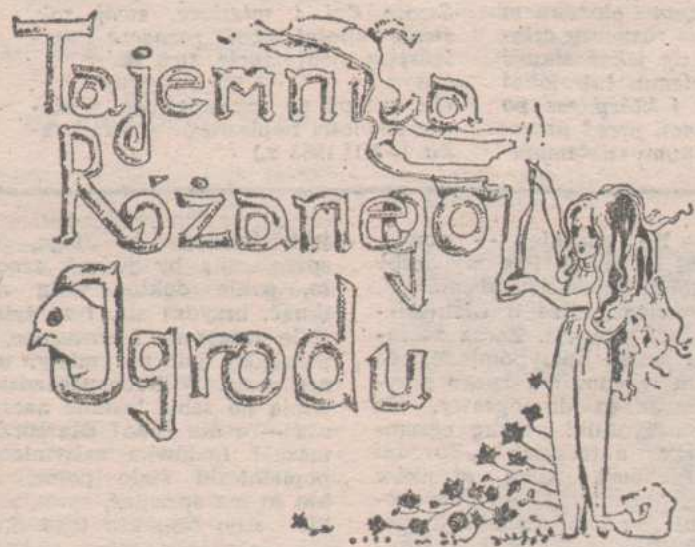 Tajemnica
Różanego
Ogrodu